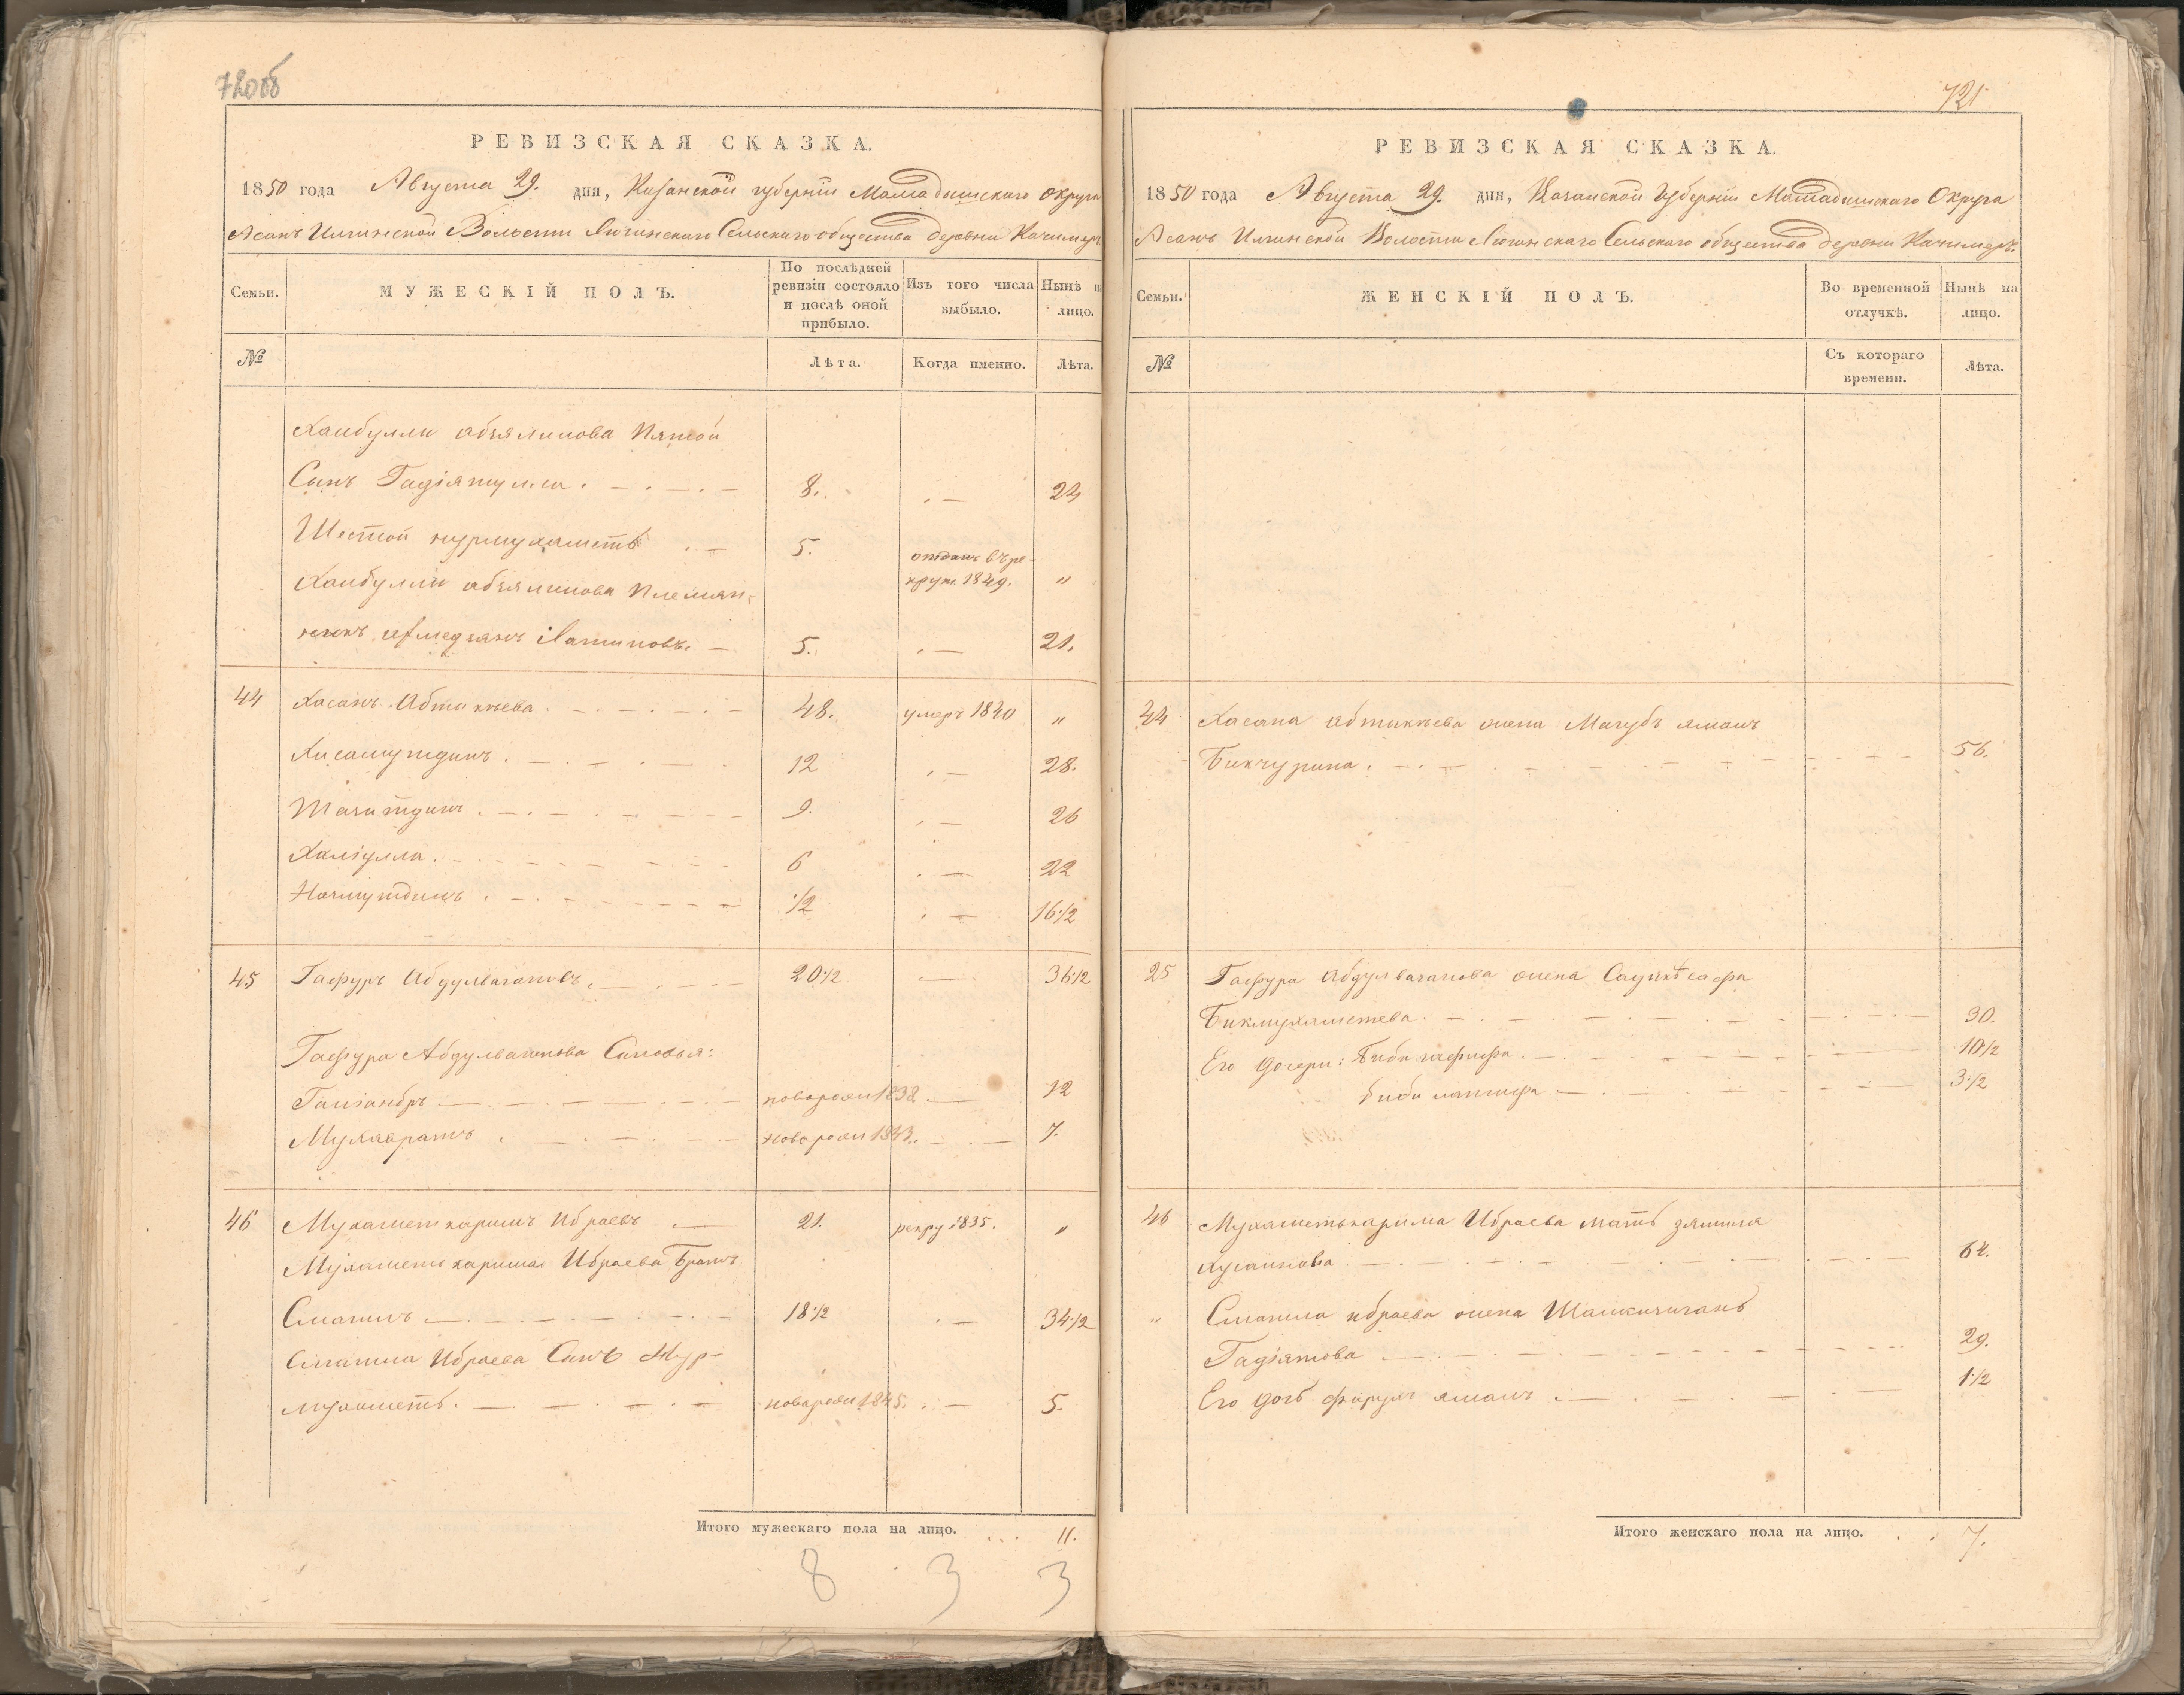 720об
РЕВИЗСКАЯ СКАЗКА.
1850 года Августа 29. дня, Казанской губернiи Мамадышскаго Округа
Асанъ Илгинской Волости Лючинскаго Сельскаго общества деревни Качимиръ
Семьи.
МУЖЕСКІЙ ПОЛЪ.
По послѣдней ревизіи состояло и послѣ оной прибыло.
Изъ того числа выбыло.
Нынѣ на лицо.
№
Лѣта.
Когда именно.
Лѣта.
Хаибулли абяялинова Пятой
Сынъ Гадiятулла. 8. 24
Шестой нурмухаметь 5. отданъ въ рекрут. 1849. "
Хаибулли абяялинова Племян-
никъ Ахмедзянъ Латиповъ. 5. 21.
44 Хасанъ Абтикѣева. 48. умеръ 1840 "
Хисамутдинъ. 12 28.
Шагитдинъ. 9. 26
Халiулла. 6 22
Начмутдинъ. 1/2 16 1/2
45 Гафуръ Абдулвагаповъ. 20 1/2 36 1/2
Гафура Абдулвагапова Сыновья:
Галiанбръ новорожд 1838 12
Мухаврамъ новорожд 1843. 7.
46 Мухаметкаримъ Ибраевъ 21. рекру 1835. "
Мухаметькарима Ибраева Братъ
Смагилъ 18 1/2 34 1/2
Смагила Ибраева Сынъ Нур-
мухаметь. новорожд 1845. 5.
Итого мужескаго пола на лицо. 11.
8 3 3
721
РЕВИЗСКАЯ СКАЗКА.
1850 года Августа 29. дня, Казанской Губернiи Мамадышскаго Округа
Асанъ Илгинской Волости Лючинскаго Сельскаго общества деревни Качимиръ.
Семьи.
ЖЕНСКІЙ ПОЛЪ.
Во временной отлучкѣ.
Нынѣ на лицо.
№
Съ котораго времени.
Лѣта.
44 Хасана абтикѣева жена Магубъ ямалъ
Бикчурина. 56.
25 Гафура Абдулвагапова жена
Бикмухаметева. 30.
Его дочери: Биби гафифа. 10 1/2
Биби латифа 3 1/2
46 Мухаметькарима Ибраева мать зямиля
Хусаинова. 64.
" Смагила ибраева жена
Гадiятова 29.
Его дочь ямалъ. 1 1/2
Итого женскаго пола на лицо. 7.